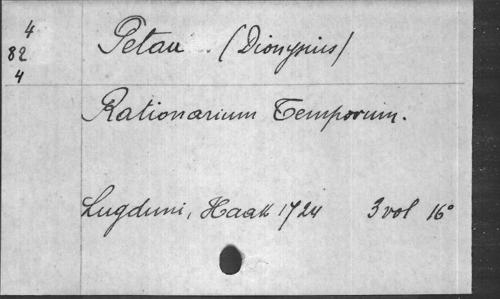 4
82
4
Petau (Dionysius)
Rationarium Temporum.
Lugduni, Haak 1724 3 vol 16°